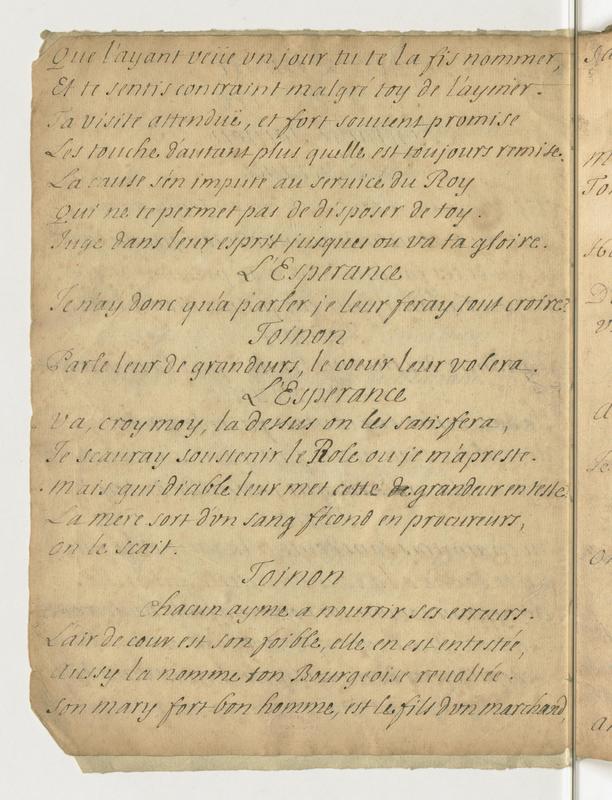 Que l'ayant veüe vn jour tu te la fis nommer,
Et te sentis contraint malgré toy de l'aymer.
Ta visite attenduë, et fort souuent promise
Les touche dautant plus quelle est toujours remise.
La cause s'en impute au seruice du Roy
Qui ne te permet pas de disposer de toy.
Juge dans leur esprit jusques ou va ta gloire.
L'Esperance
Je n'ay donc qu'a parler je leur feray tout croire?
Toinon
Parle leur de grandeurs, le coeur leur volera.
L'Esperance
Va, croy moy, la dessus on les satisfera,
Je scauray soustenir le Role ou je m'apreste.
Mais qui diable leur met cette de grandeur en teste
La mere sort d'vn sang fécond en procureurs,
on le scait.
Toinon
Chacun ayme a nourrir ses erreurs.
L'air de cour est son foible, elle en est entestée,
Aussy la nomme ton Bourgeoise reuoltée.
Son mary fort bon homme, est le fils d'vn marchand,